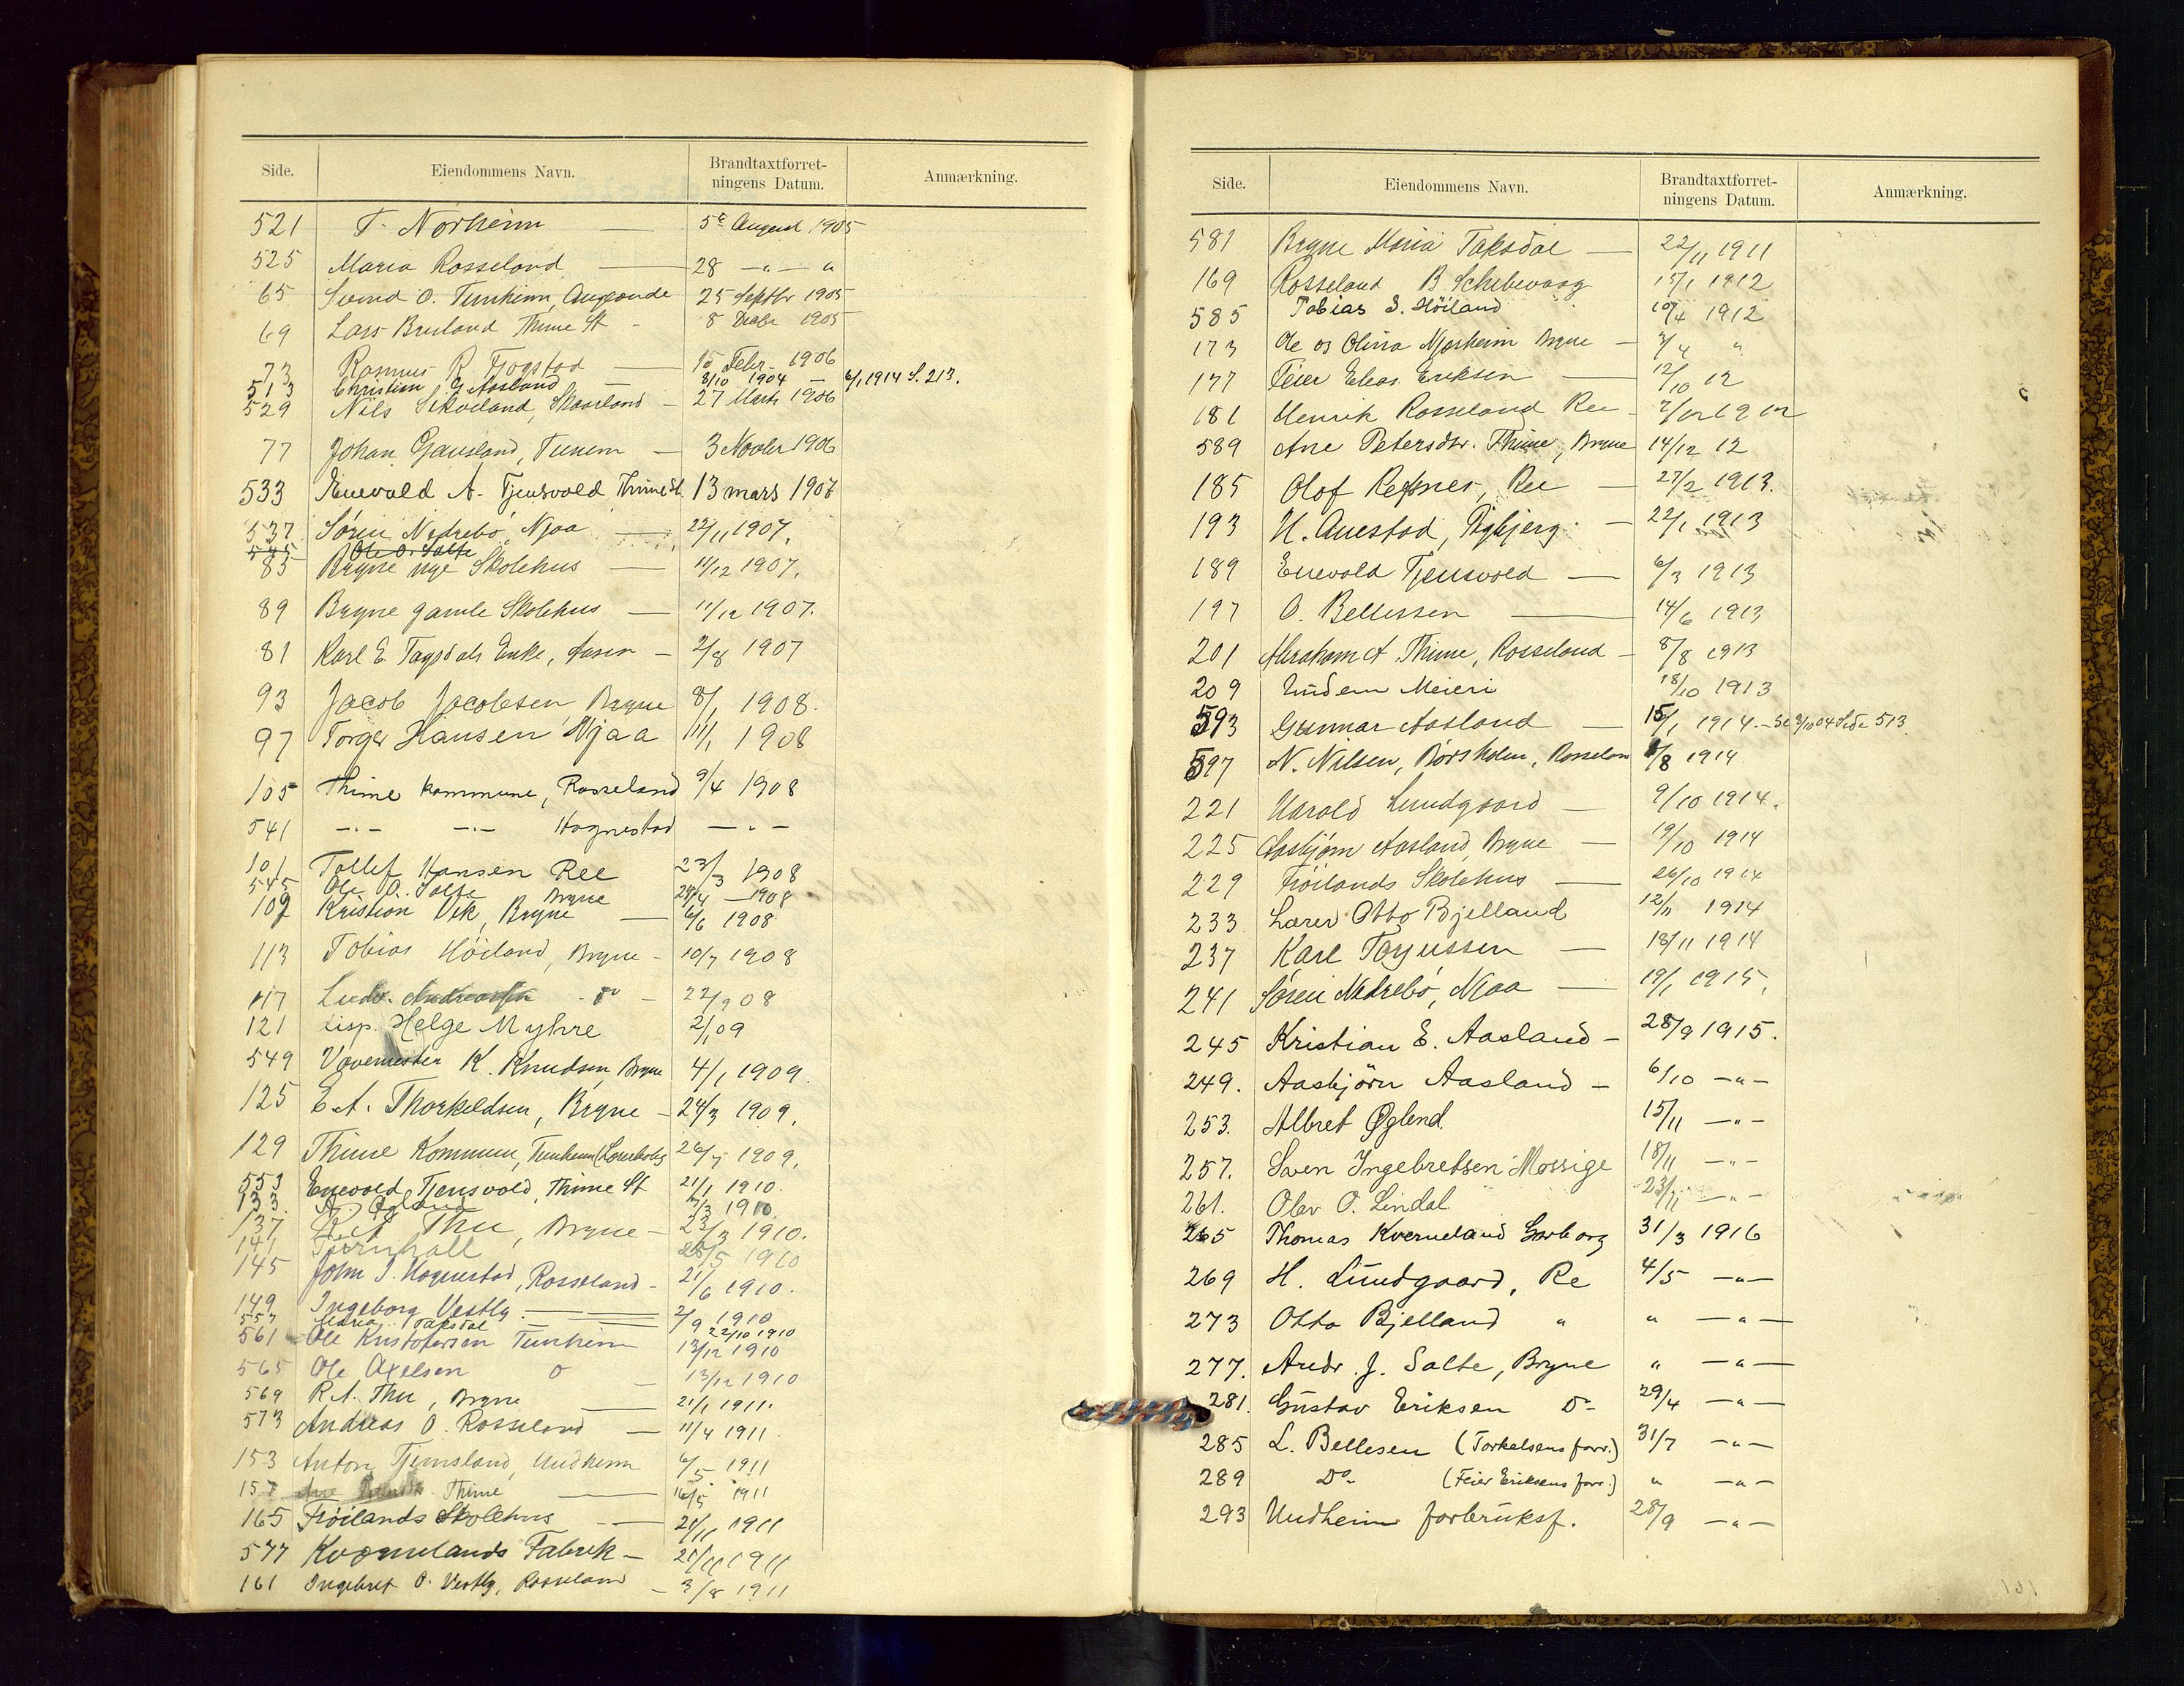 Side. Eiendommens Navn. Brandtaxtforret- Anmærkning.
ningens Datum.
521 T. Nørheim — 5te August 1905
525 Maria Rosseland — 28 —"— "
65 Svend O. Tunheim, 25 Septbr 1905
69 Lars Brusland Thime St - 8 Decbr 1905
73 Rasmus R Fjogstad — 15 Febr. 1906
513 Christian G Aasland — 8/10 1904 — 6/1 1914 S. 213.
529 Nils Skaarland — 27 Marts 1906
77 Johan Gausland, Tunem — 3 Novbr 1906
533 Enevold A. Tjensvold Thime St. 13 mars 1907
537 Søren Nedrebö, Njaa — 22/11 1907.
545 Ole O. Salte
85 Bryne nye Skolehus — 11/12 1907.
89 Bryne gamle Skolehus — 11/12 1907.
81 Karl E. Tagsdals Enke, Aasen — 2/8 1907
93 Jacob Jacobsen, Bryne 8/1 1908.
97 Torger Hansen Njaa 11/1 1908
105 Thime kommune, Rosseland 9/4 1908
541 —"— —"— Hognestad —"—
101 Tollef Hansen Ree 23/3 1908
545 Ole O. Salte Bryne 28/4 — 1908
109 Kristian Vik, Bryne — 6/6 1908
113 Tobias Höiland, Bryne - 10/7 1908
117 Ludv. Andreassen do — 22/9 08
121 disp. Helge Myhre 2/1 09
549 Vævemester K. Knudsen, Bryne 4/1 1909.
125 E. A. Thorkeldsen, Bryne — 24/3 1909.
129 Thime Kommune, Tunheim 26/7 1909.
553 Enevold Tjensvold, Thime St 21/1 1910.
133. A. Øgland 7/3 1910.
137 Thu, Bryne — 23/3 1910.
141 Turnhall 28/5 1910
145 John J. Hognestad, Rosseland - 21/6 1910.
149 Ingeborg Vestly — 2/9 1910
557 Maria Taksdal 22/10 1910
561 Ole Kristofersen Tunheim 13/12 1910
565 Ole Axelsen do — 13/12 1910
569 R. A. Thu, Bryne — 21/1 1911.
573 Andreas O. Rosseland — 11/4 1911.
153 Anton Tjemsland, Undheim 6/5 1911
157 Thime — 16/5 1911
165 Fröilands Skolehus — 21/11 1911
577 Kvernelands Fabrik — 21/11 1911
161 Ingebret O. Vestly, Rosseland — 3/8 1911
Side. Eiendommens Navn. Brandtaxtforret- Anmærkning.
ningens Datum.
581 Bryne Maria Taksdal — 22/11 1911
169 Rosseland B. Schibevaag 15/1 1912
585 Tobias S. Höiland 10/4 1912
173 Ole og Olina Njærheim Bryne — 3/4 "
177 Feier Elias Eriksen — 12/10 12
181 Henrik Rosseland Ree - 7/12 1912
589 Ane Petersdtr. Thime, Bryne 14/12 12
185 Olof Refsnes, Ree — 27/2 1913.
193 H. Auestad, Rygbjerg. — 22/1 1913
189 Enevold Tjensvold — 6/3 1913
197 O. Bellessen — 14/6 1913
201 Abraham A. Thime, Rosseland — 8/8 1913
209 Undem Meieri 18/10 1913
593 Gunnar Aasland — 15/1 1914. — Se 8/10 04 Side 513.
597 N. Nilsen, Börsholm, Rosselan 5/8 1914
221 Harald Lundgaard — 9/10 1914.
225 Aasbjörn Aasland, Bryne — 19/10 1914
229 Fröilands Skolehus — 26/10 1914
233 Lærer Otto Bjelland 12/11 1914
237 Karl Torjussen — 18/11 1914
241 Søren Nedrebö, Njaa — 19/1 1915,
245 Kristian E. Aasland — 28/9 1915.
249. Aasbjörn Aasland — 6/10 —"—
253. Albret Øglend. 15/11 —"—
257. Sven Ingebretsen Mossige 18/11 —"—
261. Olav O. Lindal 23/11 —"—
265 Thomas Kverneland Garborg 31/3 1916
269 H. Lundgaard, Re 4/5 —"—
273 Otto Bjelland " " —"—
277. Andr. J. Salte, Bryne " —"—
281. Gustav Eriksen Do 29/4 —"—
285 L. Bellesen (Torkelsens forr.) 31/7 —"—
289 Do (Feier Eriksens forr.) " —"—
293 Undheim forbruksf. 28/9 —"—